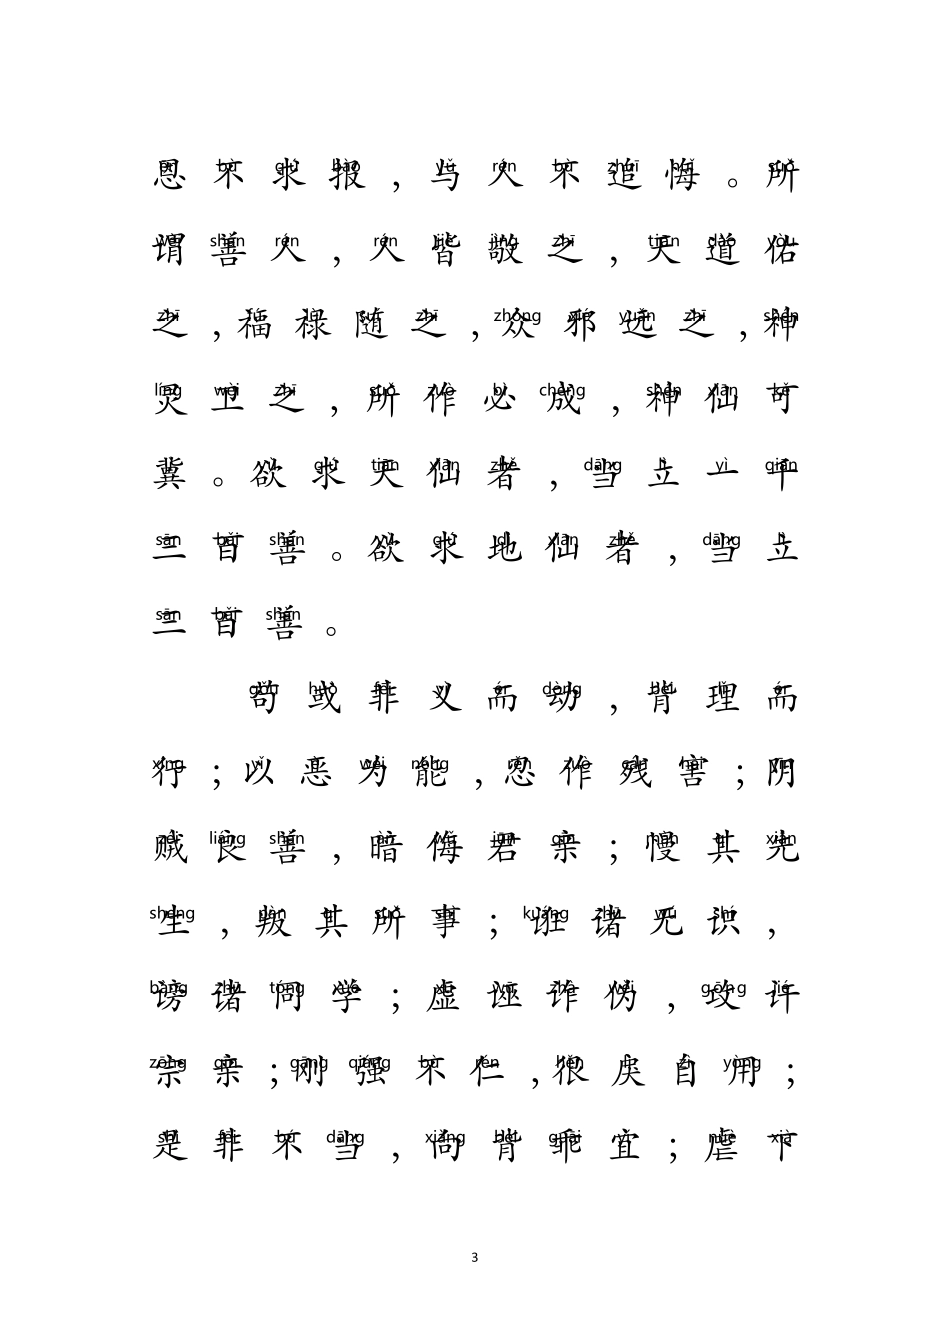 恩不求报，与人不追悔。所
谓善人，人皆敬之，天道佑
之，福禄随之，众邪远之，神
灵卫之，所作必成，神仙可
冀。欲求天仙者，当立一千
三百善。欲求地仙者，当立
三百善。
苟或非义而动，背理而
行；以恶为能，忍作残害；阴
贼良善，暗侮君亲；慢其先
生，叛其所事；诳诸无识，
谤诸同学；虚诬诈伪，攻讦
宗亲；刚强不仁，很戾自用；
是非不当，向背乖宜；虐下
3